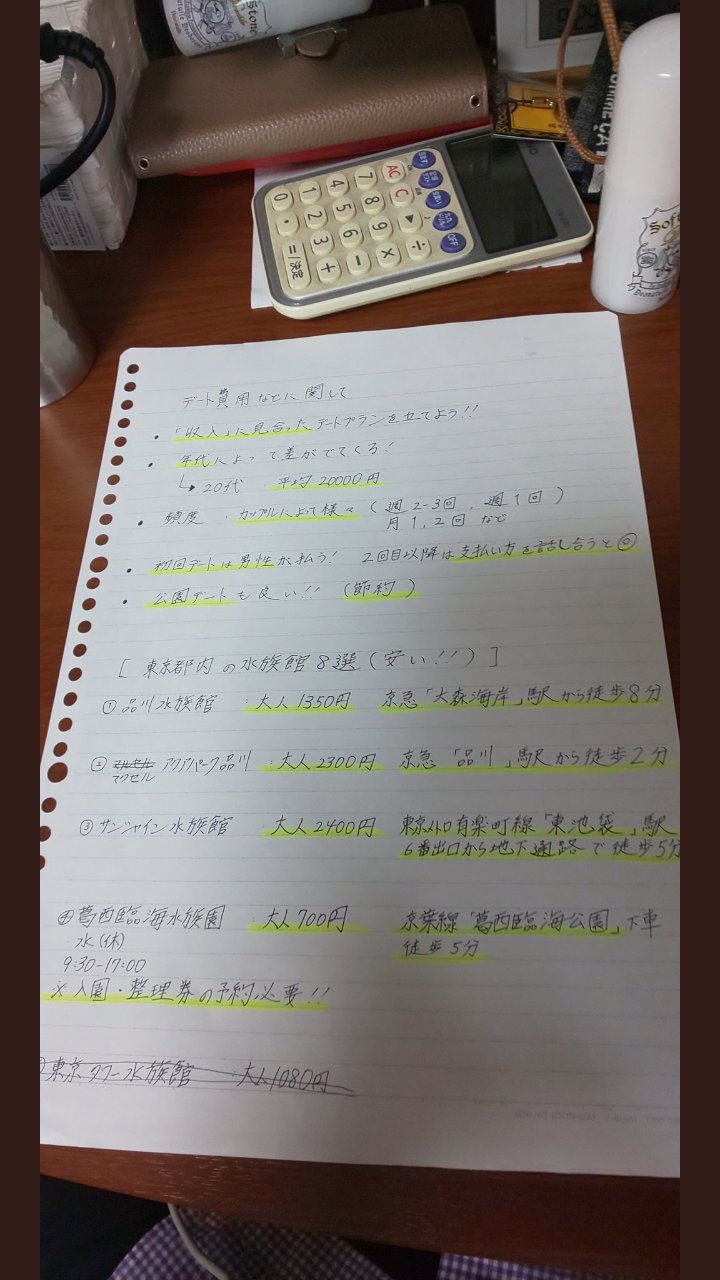 Stone
AC
C
OFF
7
8
9
÷
4
5
6
×
1
2
3
－
0
・
＝/決定
＋
デート費用などに関して
・「収入」に見合ったデートプランを立てよう!!
・年代によって差がでてくる!
↳ 20代 平均 20000円
・頻度 カップルによって様々 (週2-3回, 週1回)
月1, 2回 など
・初回デートは男性が払う! 2回目以降は支払い方を話し合うと◎
・公園デートも良い!! (節約)
[ 東京都内の水族館8選 (安い!!) ]
① 品川水族館 : 大人1350円 京急「大森海岸」駅から徒歩8分
② マクセル アクアパーク品川 : 大人2300円 京急「品川」駅から徒歩2分
③ サンシャイン水族館 大人2400円 東京メトロ有楽町線「東池袋」駅
6番出口から地下通路で徒歩5分
④ 葛西臨海水族園 : 大人700円 京葉線「葛西臨海公園」下車
水(休) 徒歩5分
9:30-17:00
※入園・整理券の予約必要!!
東京タワー水族館 : 大人1080円